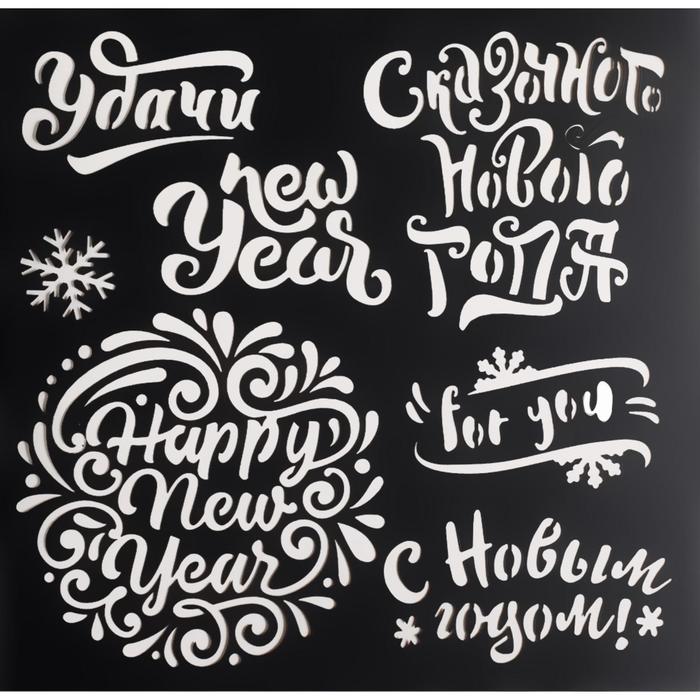 Удачи
Сказочного
Нового
Года
new
Year
Happy
New
Year
for you
С Новым
годом!